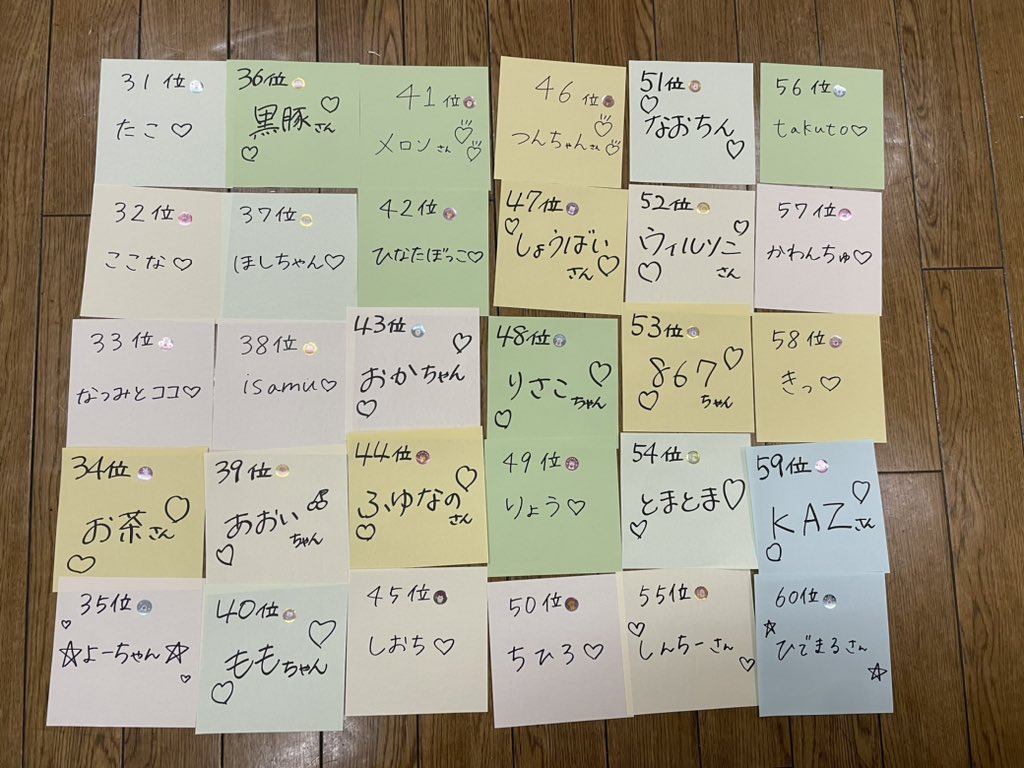 31位
たこ♡
32位
ここな♡
33位
なつみとココ♡
34位
お茶さん
35位
☆よーちゃん☆
36位
黒豚さん
37位
ほしちゃん♡
38位
isamu♡
39位
あおいちゃん
40位
ももちゃん
41位
メロンさん
42位
ひなたぼっこ♡
43位
おかちゃん
44位
ふゆなのさん
45位
しおち♡
46位
つんちゃんさん
47位
しょうばいさん
48位
りさこちゃん
49位
りょう♡
50位
ちひろ♡
51位
なおちん
52位
ウィルソニさん
53位
867ちゃん
54位
とまとま♡
55位
しんちーさん
56位
takuto♡
57位
かわんちゅ♡
58位
きっ♡
59位
KAZさん
60位
ひでまるさん